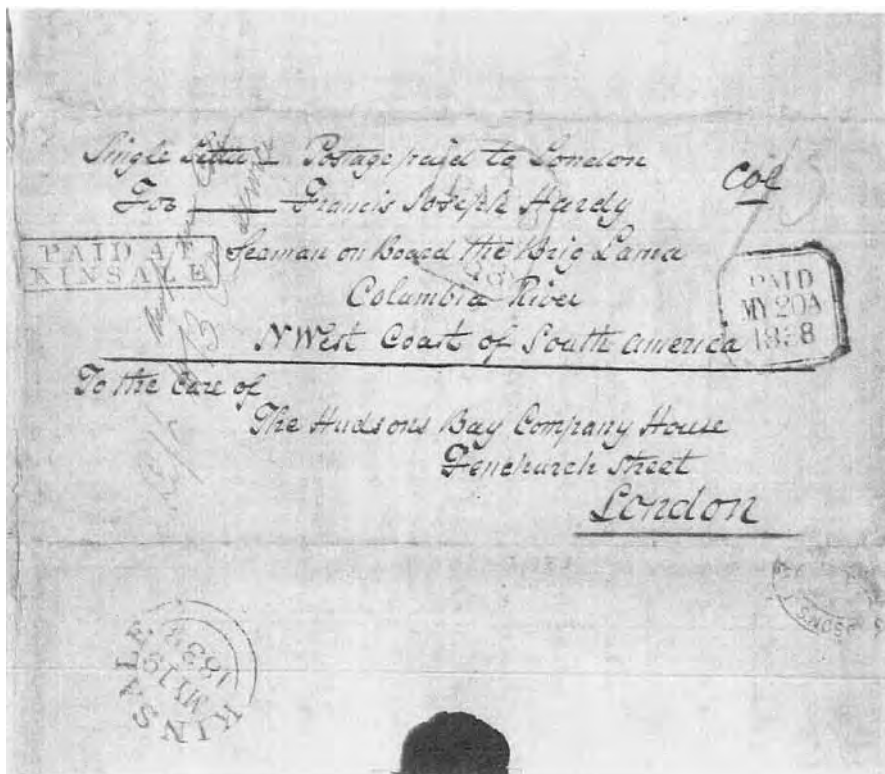 Single Letter – Postage paid to London
Col
For — Francis Joseph Hardy
PAID AT
KINSALE
Seaman on Board the Brig Lama
Columbia River
N West Coast of South America
PAID
MY 20 A
1838
To the Care of
The Hudsons Bay Company House
Fenchurch Street
London
KINSALE
MY 15
183